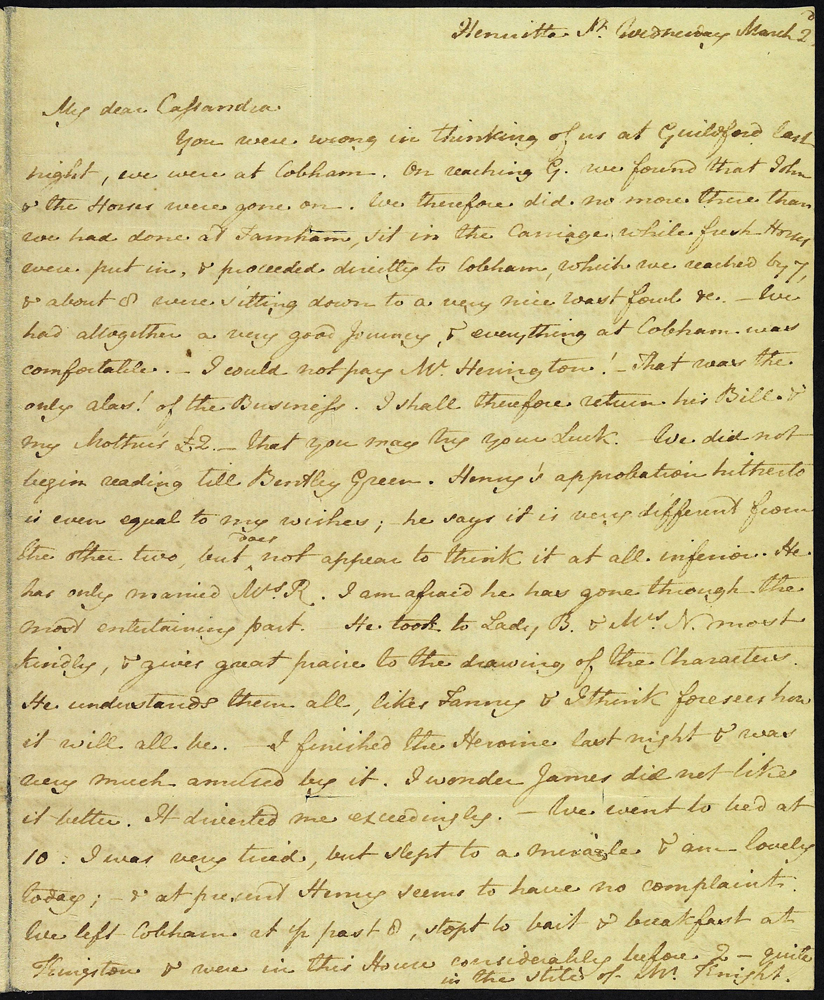 Henrietta St. Wednesday March 2d
My dear Cassandra
You were wrong in thinking of us at Guildford last
night, we were at Cobham. On reaching G. we found that John
& the Horses were gone on. We therefore did no more there than
we had done at Farnham, sit in the Carriage while fresh Horses
were put in, & proceeded directly to Cobham, which we reached by 7,
& about 8 were sitting down to a very nice roast fowl &c. - We
had altogether a very good Journey, & everything at Cobham was
comfortable. - I could not pay Mr. Herington! - That was the
only alas! of the Business. I shall therefore return his Bill &
my Mother's £2. - that you may try your Luck. - We did not
begin reading till Bentley Green. Henry's approbation hitherto
is even equal to my wishes; - he says it is very different from
the other two, but does not appear to think it at all inferior. He
has only married Mrs. R. I am afraid he has gone through the
most entertaining part. - He took to Lady B. & Mrs. N. most
kindly, & gives great praise to the drawing of the Characters.
He understands them all, likes Fanny & I think foresees how
it will all be. - I finished the Heroine last night & was
very much amused by it. I wonder James did not like
it better. It diverted me exceedingly. - We went to bed at
10. I was very tired, but slept to a miracle & am lovely
today; - & at present Henry seems to have no complaint.
We left Cobham at ½ past 8, stopt to bait & breakfast at
Kingston & were in this House considerably before 2 - quite
in the stile of Mr. Knight.